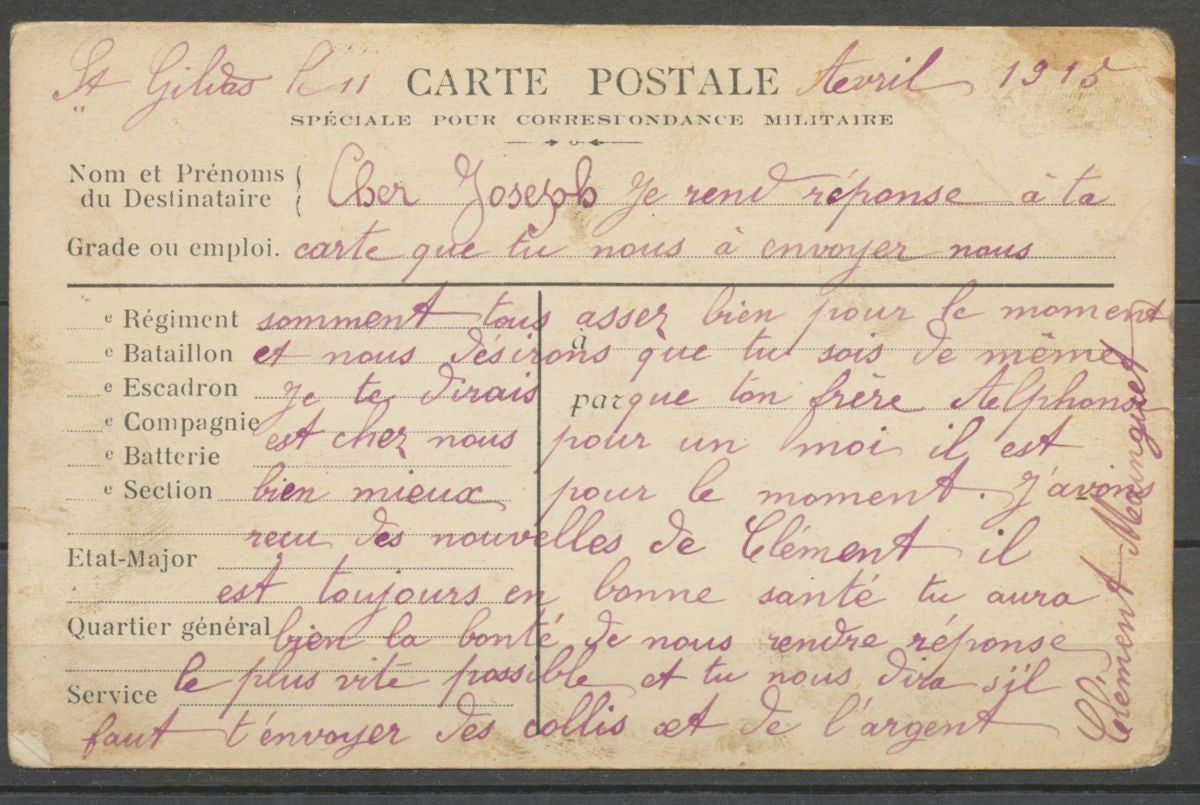 St Gildas le 11 CARTE POSTALE Avril 1915
SPÉCIALE POUR CORRESPONDANCE MILITAIRE
Nom et Prénoms
du Destinataire
Cher Joseph je rend réponse à ta
Grade ou emploi. carte que tu nous à envoyer nous
e Régiment somment tous assez bien pour le moment
à
e Bataillon et nous désirons que tu sois de même
e Escadron je te dirais par que ton frère Alphonse
e Compagnie est chez nous pour un moi il est
e Batterie
e Section bien mieux pour le moment. J'avons
recu des nouvelles de Clément il
Etat-Major
est toujours en bonne santé tu aura
Quartier général bien la bonté de nous rendre réponse
Service le plus vite possible et tu nous dira s'il
faut t'envoyer des collis et de l'argent
Clément Mainguet